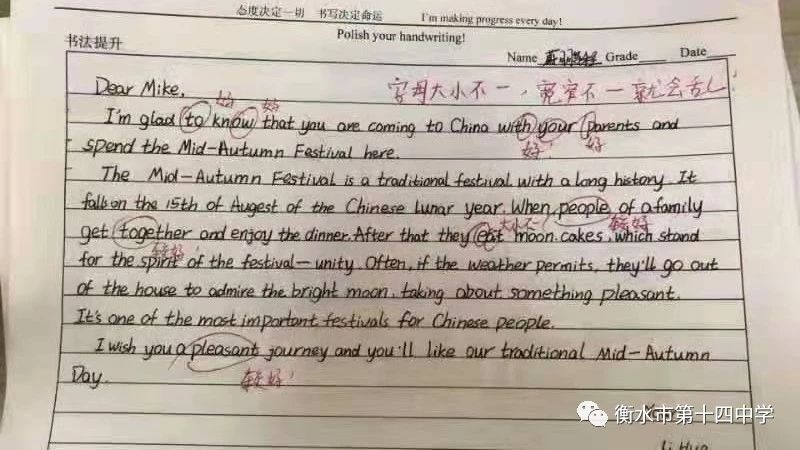 态度决定一切 书写决定命运 I'm making progress every day!
书法提升 Polish your handwriting!
Name Grade Date
Dear Mike, 字母大小不一，宽窄不一就会舌乚!
好 好
I'm glad to know that you are coming to China with your parents and
好! 好
spend the Mid-Autumn Festival here.
The Mid-Autumn Festival is a traditional festival with a long history. It
falls on the 15th of Augest of the Chinese lunar year. When people of a family
大小不一 较好
get together and enjoy the dinner. After that they eat moon cakes, which stand
较好!
for the spirit of the festival—unity. Often, if the weather permits, they'll go out
of the house to admire the bright moon, taking about something pleasant.
It's one of the most important festivals for Chinese people.
I wish you a pleasant journey and you'll like our traditional Mid-Autumn
较好!
Day.
衡水市第十四中学
Li Hua